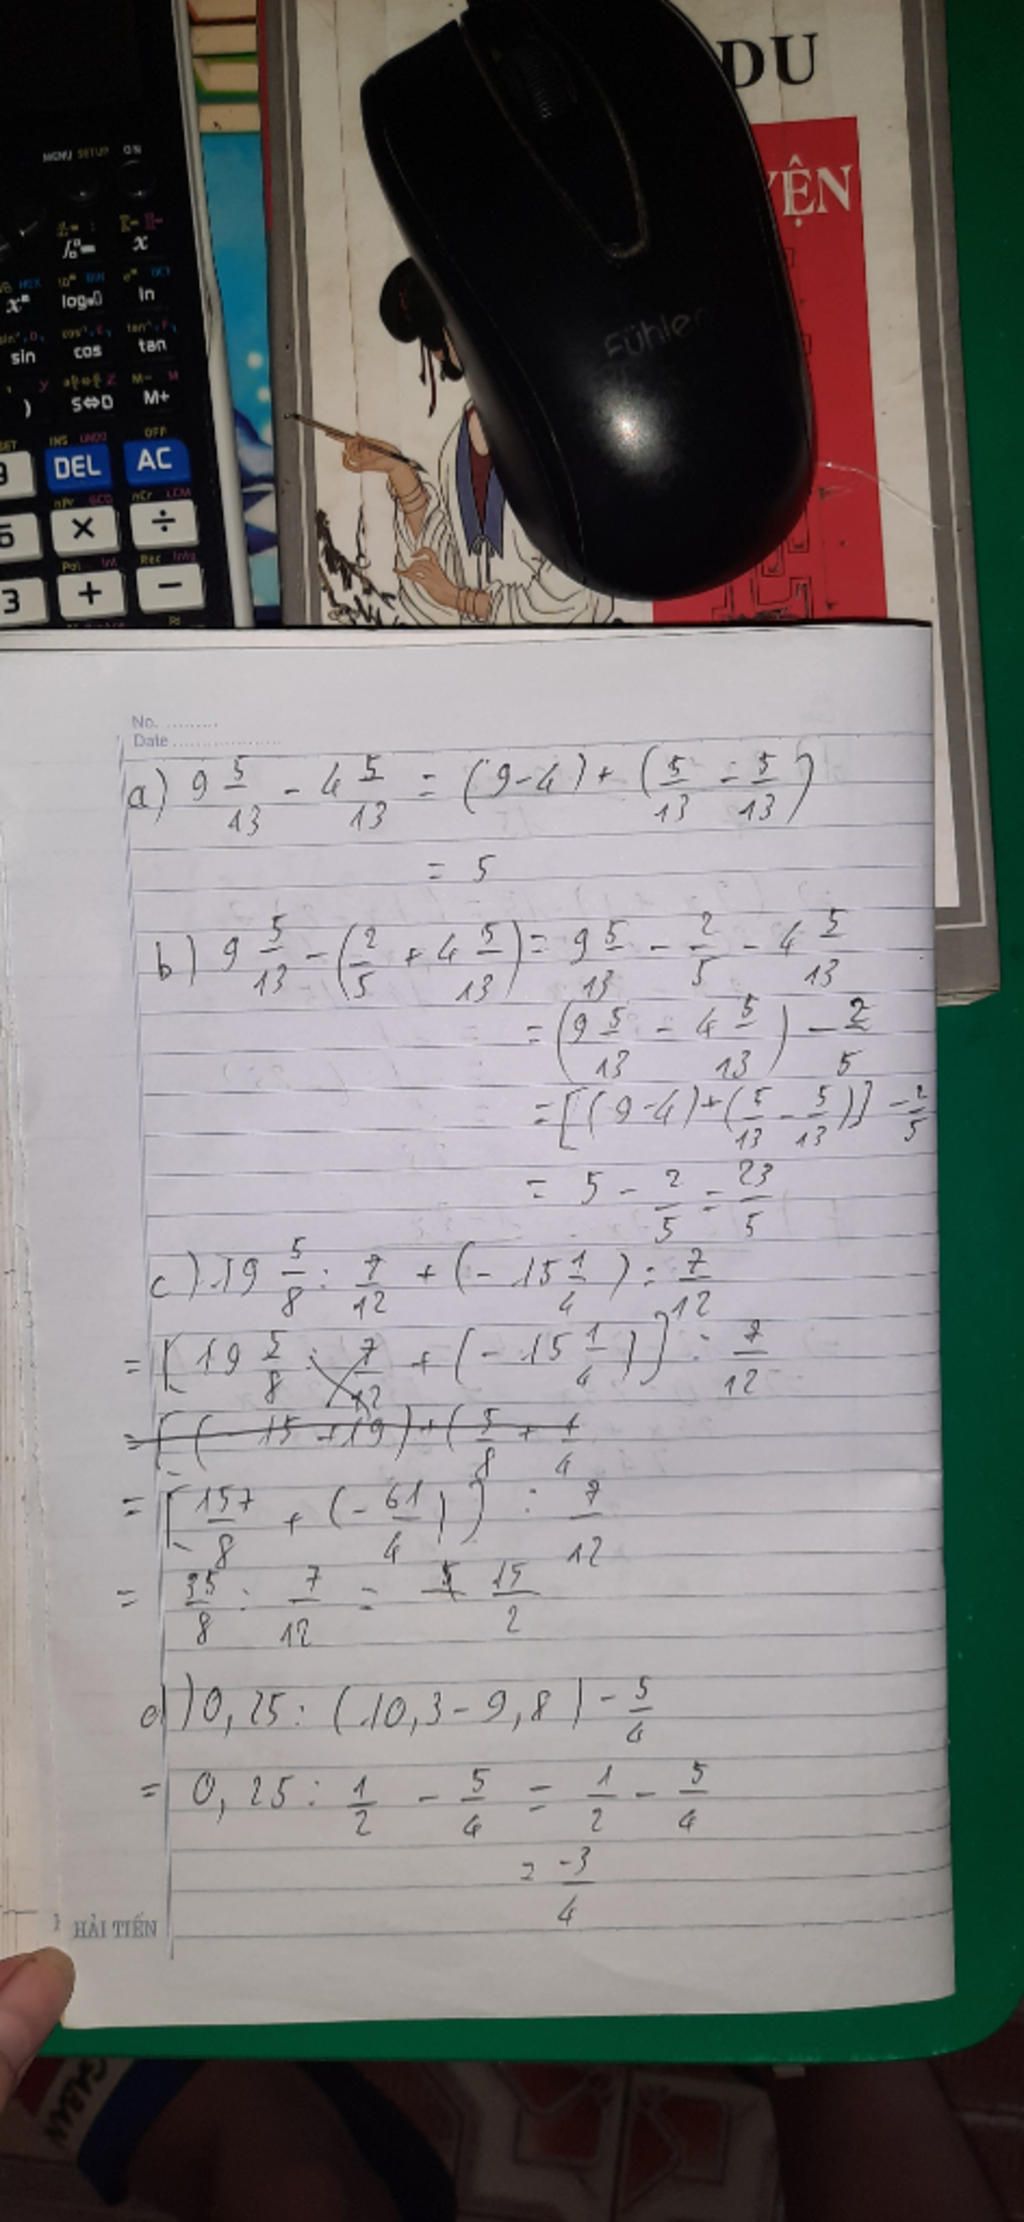 DU
YỆN
Fühler
MENU SETUP ON
x
log ln
sin cos tan
) S⇔D M+
DEL AC
× ÷
3 + −
No. ..........
Date ....................
a) 9 5/13 - 4 5/13 = (9-4) + (5/13 - 5/13)
= 5
b) 9 5/13 - (2/5 + 4 5/13) = 9 5/13 - 2/5 - 4 5/13
= (9 5/13 - 4 5/13) - 2/5
= [(9-4) + (5/13 - 5/13)] - 2/5
= 5 - 2/5 = 23/5
c) 19 5/8 : 7/12 + (-15 1/4) : 7/12
= [19 5/8 : 7/12 + (-15 1/4)] : 7/12
= [(-15 +19) + (5/8 + 1/4
= [157/8 + (-61/4)] : 7/12
= 35/8 : 7/12 = 15/2
d) 0,25 : (10,3 - 9,8) - 5/4
= 0,25 : 1/2 - 5/4 = 1/2 - 5/4
= -3/4
HẢI TIẾN